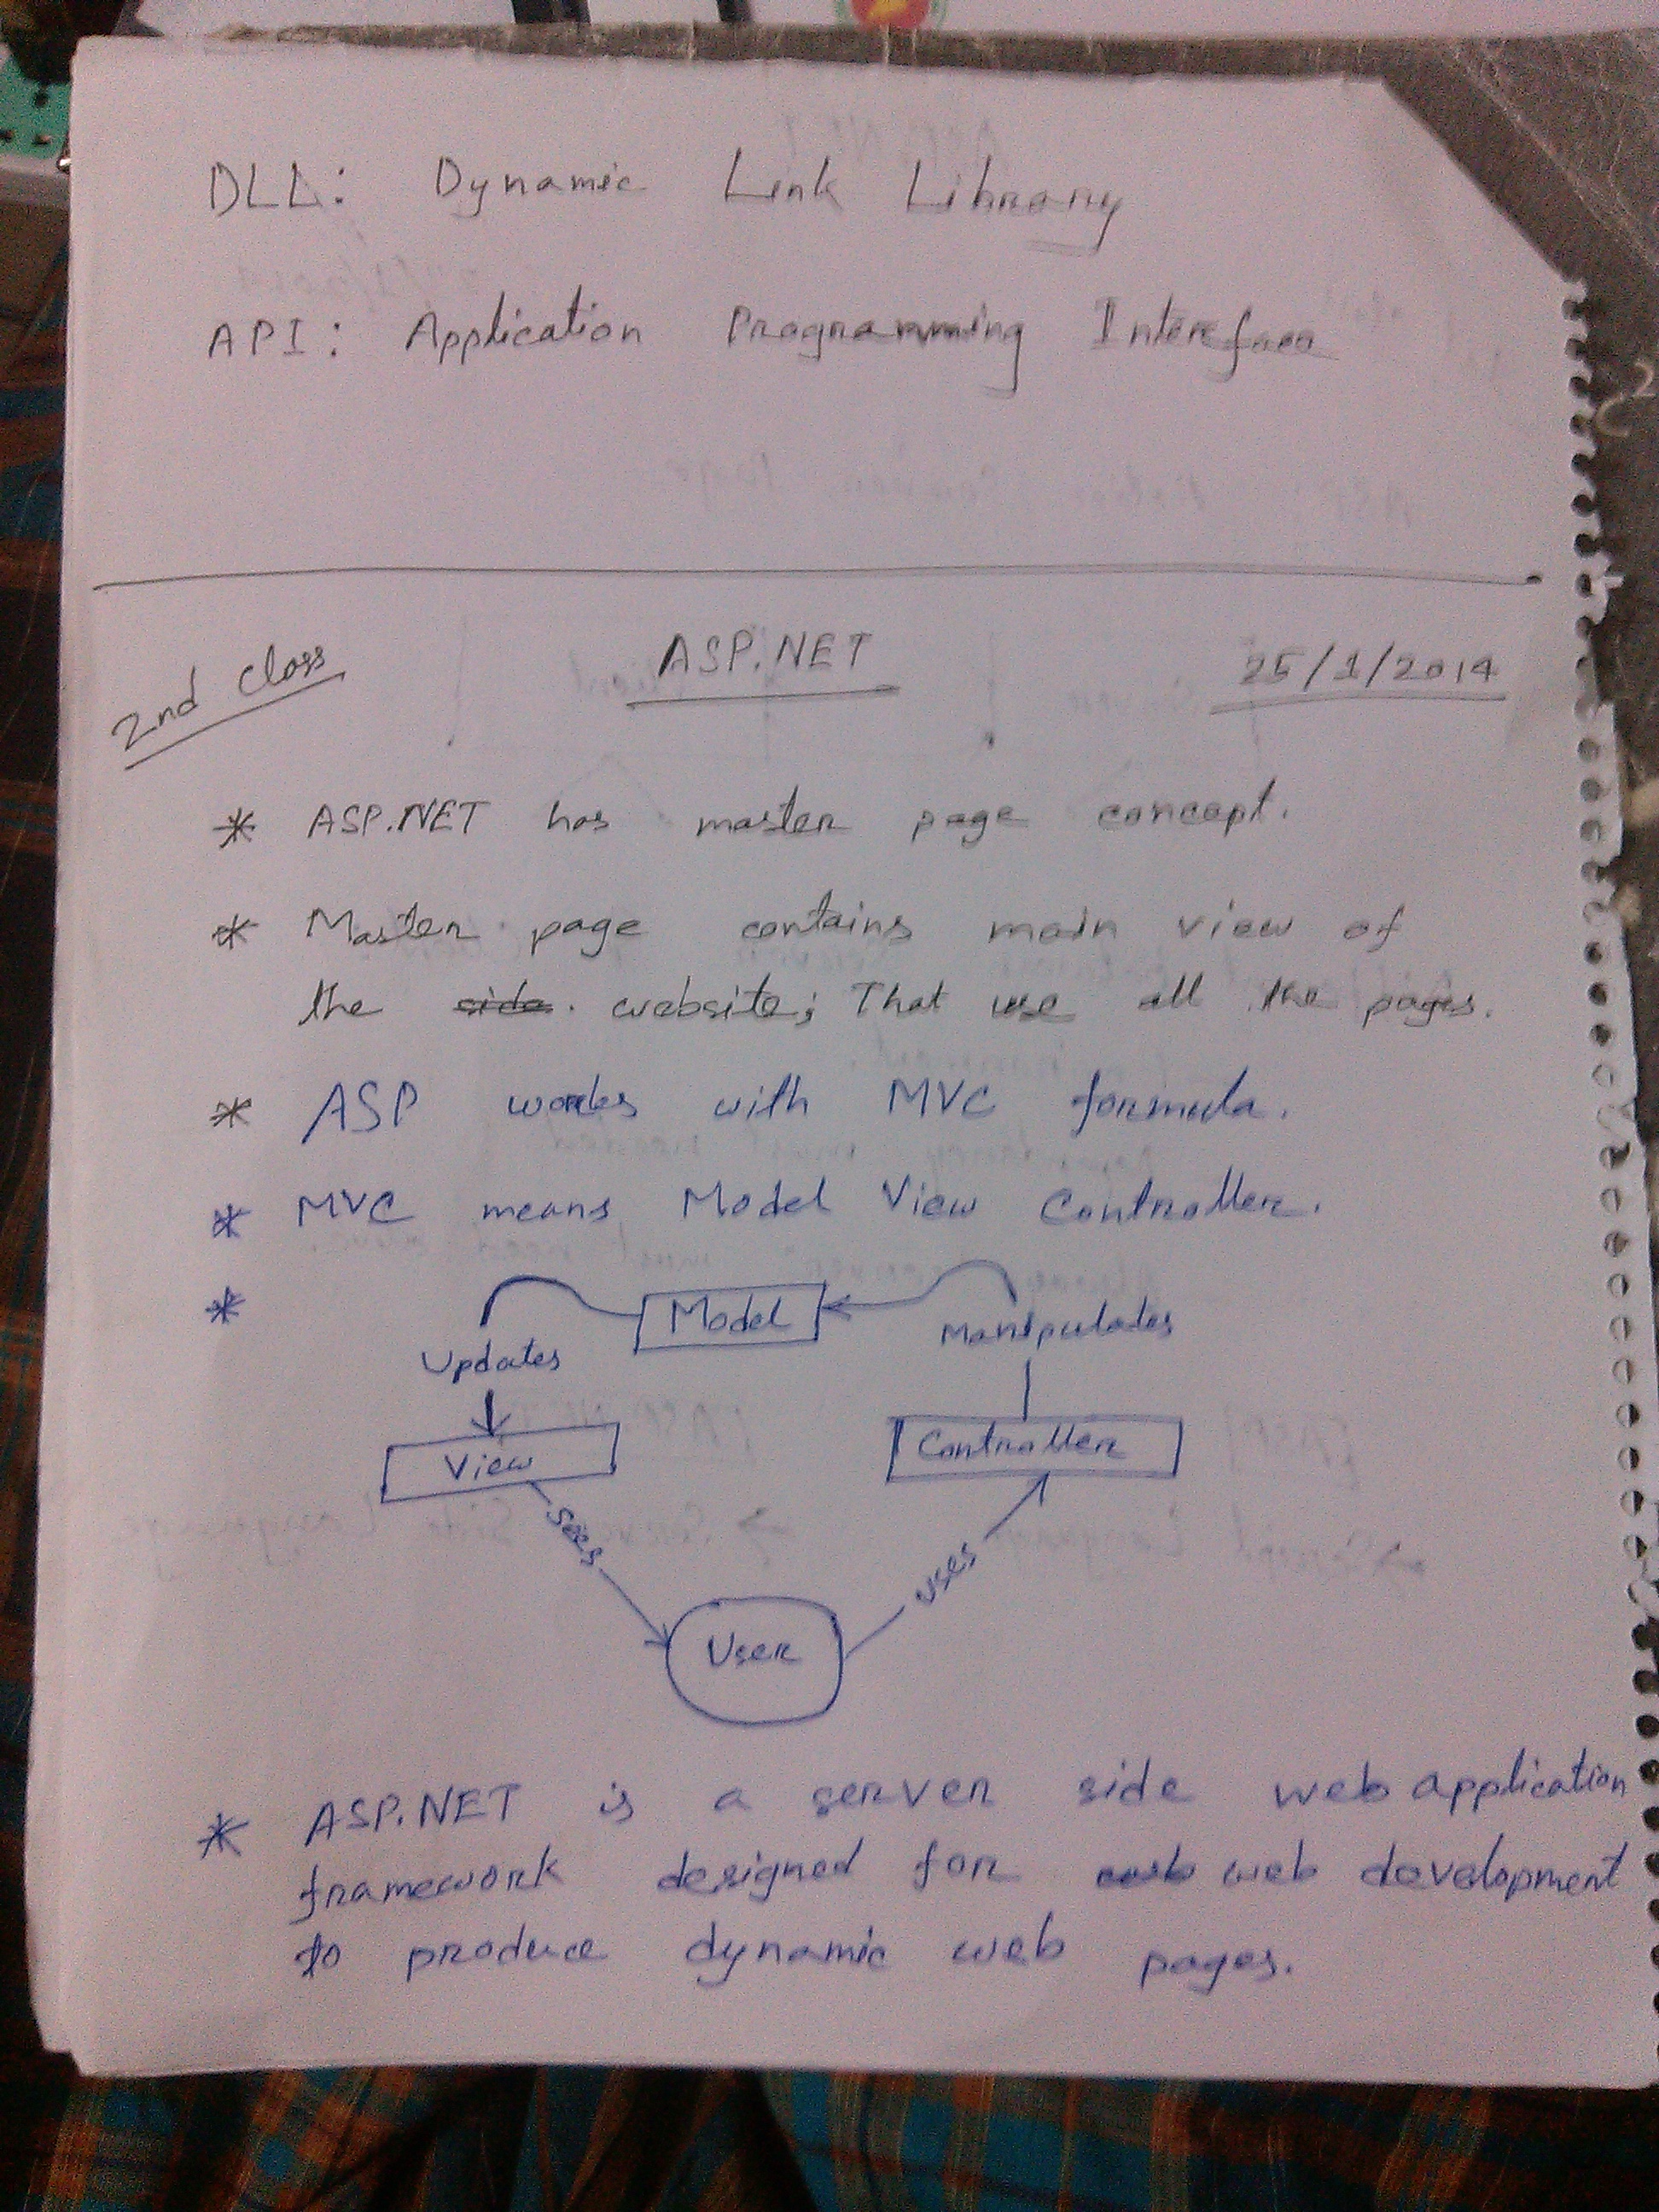 DLL: Dynamic Link Library
API: Application Programming Interface
2nd Class
ASP.NET
25/1/2014
* ASP.NET has master page concept.
* Master page contains main view of
the side. website; That use all the pages.
* ASP works with MVC formula.
* MVC means Model View Controller.
*
Model
Updates
Manipulates
View
Controller
sees
uses
User
* ASP.NET is a server side web application
framework designed for web development
to produce dynamic web pages.